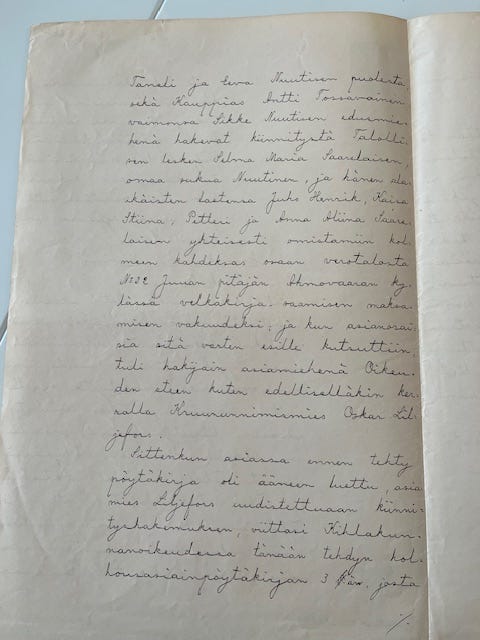 Taneli ja Eeva Nuutisen puolesta,
sekä Kauppias Antti Tossavainen
vaimonsa Sikke Nuutisen edusmie-
henä hakevat kiinnitystä Talolli-
sen lesken Selma Maria Saarelaisen,
omaa sukua Nuutinen, ja hänen ala-
ikäisten lastensa Juho Henrik, Kaisa
Stiina, Petteri ja Anna Aliina Saare-
laisen yhteisesti omistamiin kol-
meen kahdeksas osaan verotalosta
№ 32 Juuan pitäjän Ahmovaaran ky-
lässä velkakirja-saamisen maksa-
misen vakuudeksi; ja kun asianosai-
sia sitä varten esille kutsuttiin,
tuli hakijain asiamiehenä Oikeu-
den eteen kuten edelliselläkin ker-
ralla Kruununnimismies Oskar Lil-
jefors.
Sittenkun asiassa ennen tehty
pöytäkirja oli ääneen luettu, asia-
mies Liljefors uudistettuaan kiinni-
tyshakemuksen, viittasi Kihlakun-
nanoikeudessa tänään tehdyn hol-
housasiainpöytäkirjan 3 §:ään, josta
./.